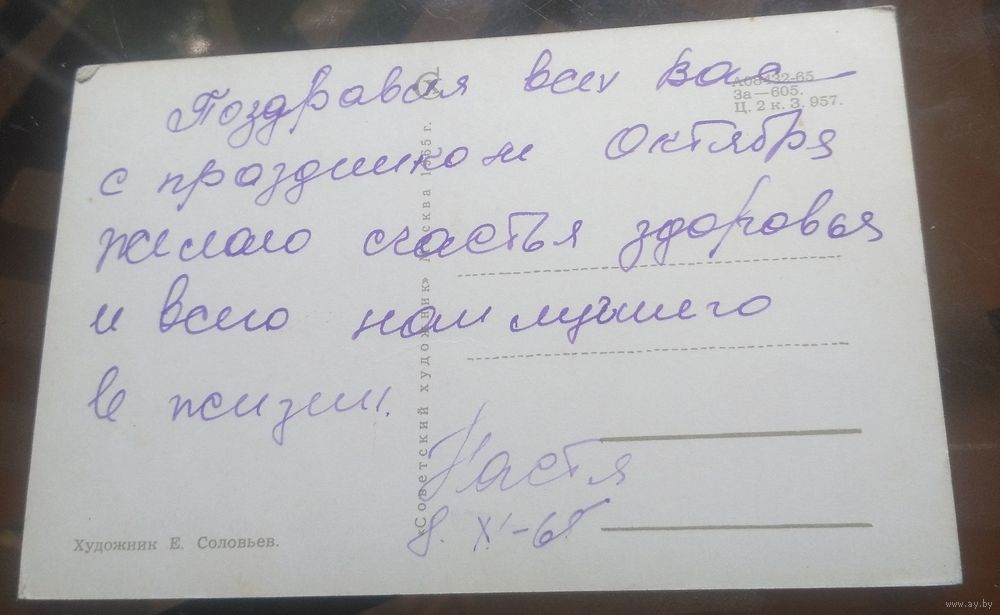 Поздравляя всех вас
с праздником Октября
желаю счастья здоровья
и всего наилучшего
в жизни.
Настя
8. XI-65
А08432-65
За—605.
Ц. 2 к. З. 957.
«Советский художник» Москва 1965 г.
Художник Е. Соловьев.
www.ay.by